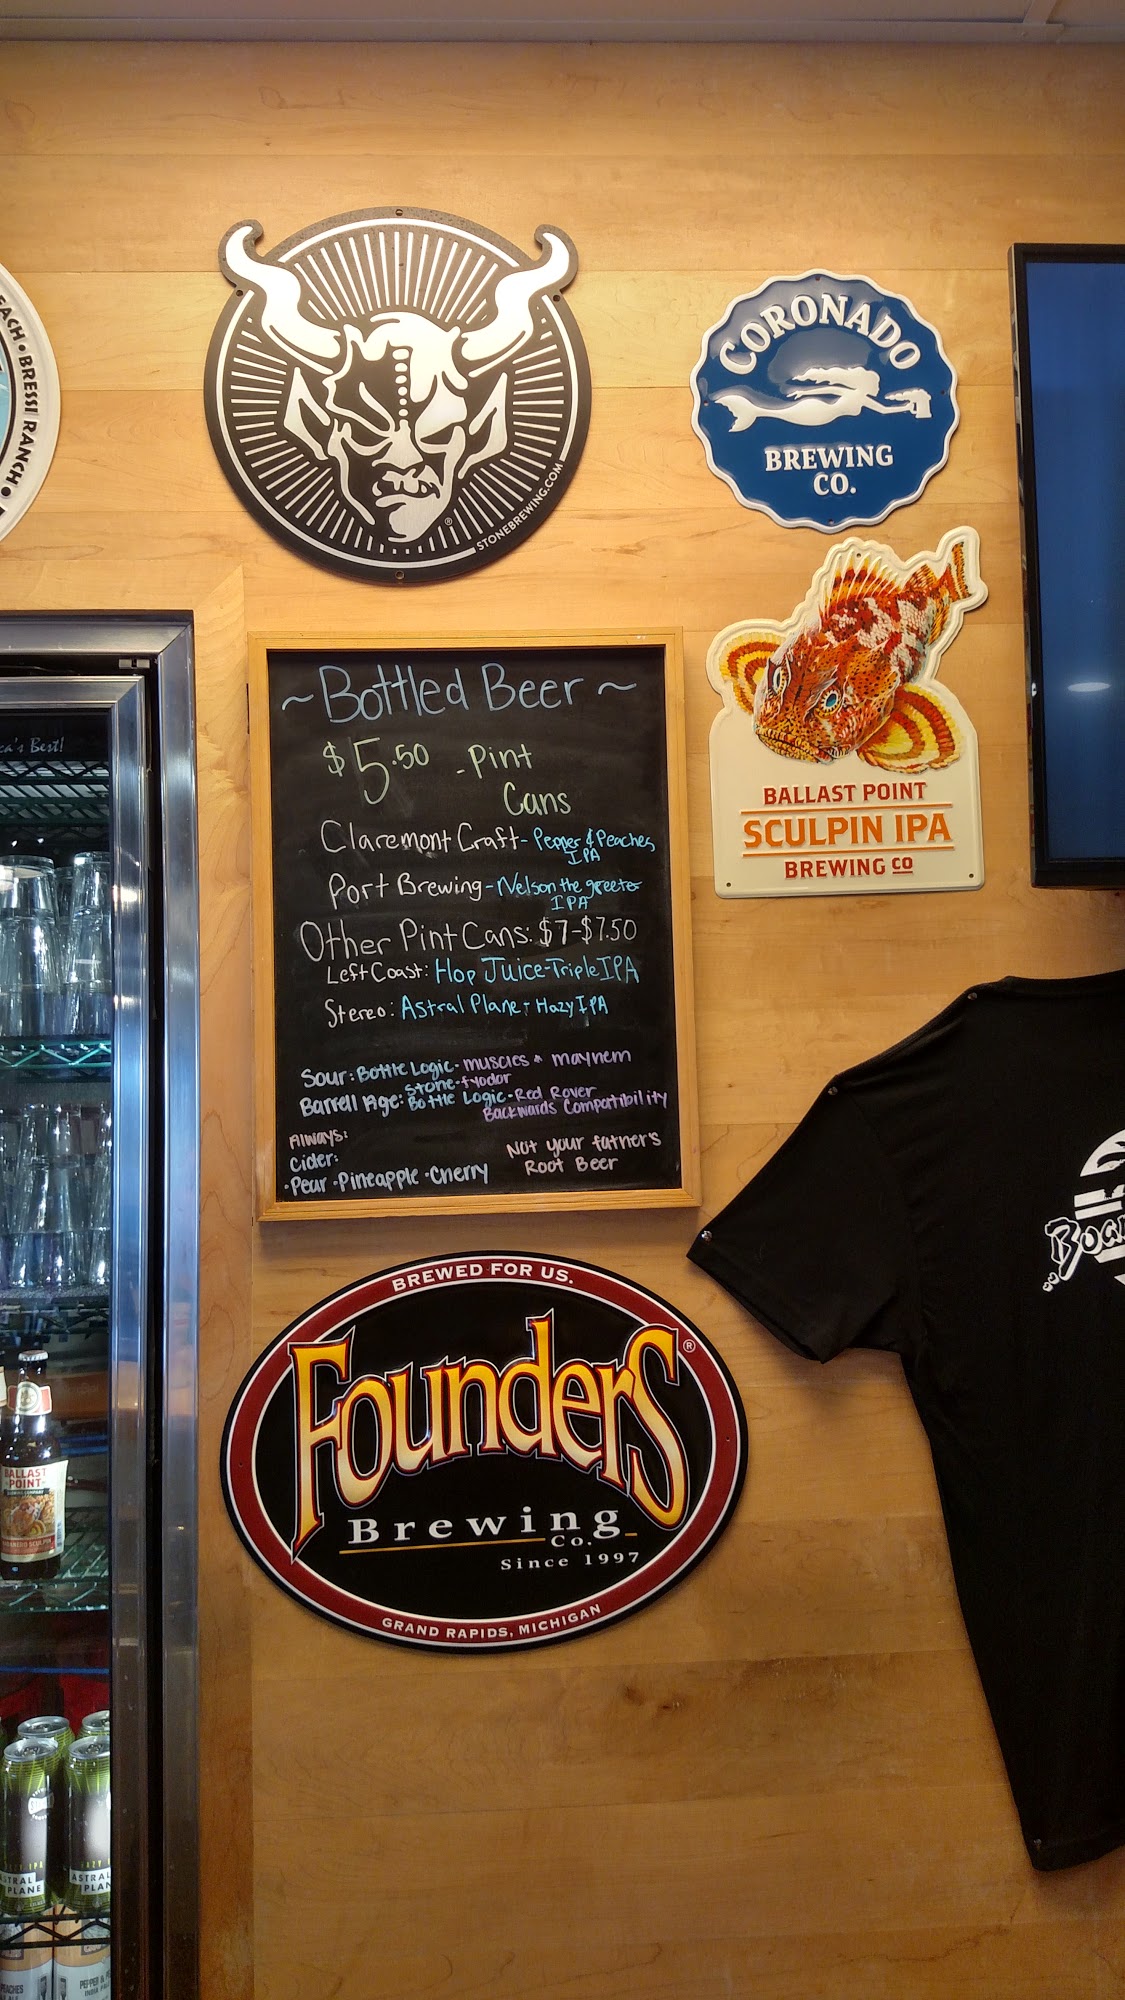 EACH • BRESSI RANCH •
STONEBREWING.COM
®
CORONADO
BREWING
CO.
BALLAST POINT
SCULPIN IPA
BREWING CO
ca's Best!
~ Bottled Beer ~
$5.50 - Pint
Cans
Claremont Craft - Pepper & Peaches
IPA
Port Brewing - Nelson the greeter
IPA
Other Pint Cans: $7-$7.50
Left Coast: Hop Juice - Triple IPA
Stereo: Astral Plane - Hazy IPA
Sour: Bottle Logic - muscles & mayhem
Stone - fyodor
Barrell Age: Bottle Logic - Red Rover
Backwards Compatibility
Always:
Cider:
•Pear •Pineapple •Cherry
Not your father's
Root Beer
BREWED FOR US.
Founders
®
Brewing
Co.
Since 1997
GRAND RAPIDS, MICHIGAN
Boa
BALLAST
POINT
HABANERO SCULPIN
HAZY IPA
ASTRAL
PLANE
ASTRAL
PLAN
PEACHES
PEPPER &
INDIA PALE